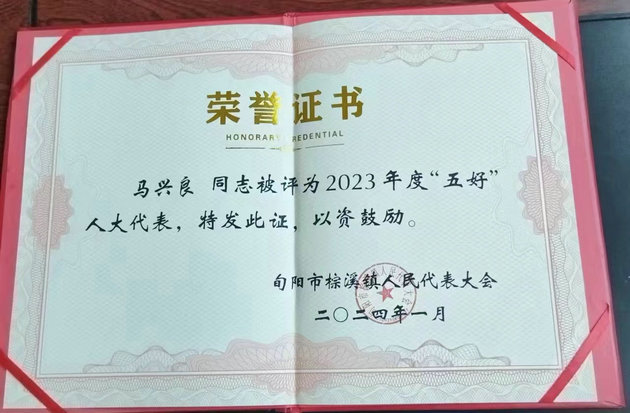 荣誉证书
HONORARY CREDENTIAL
马兴良 同志被评为2023年度“五好”
人大代表，特发此证，以资鼓励。
旬阳市棕溪镇人民代表大会
二〇二四年一月